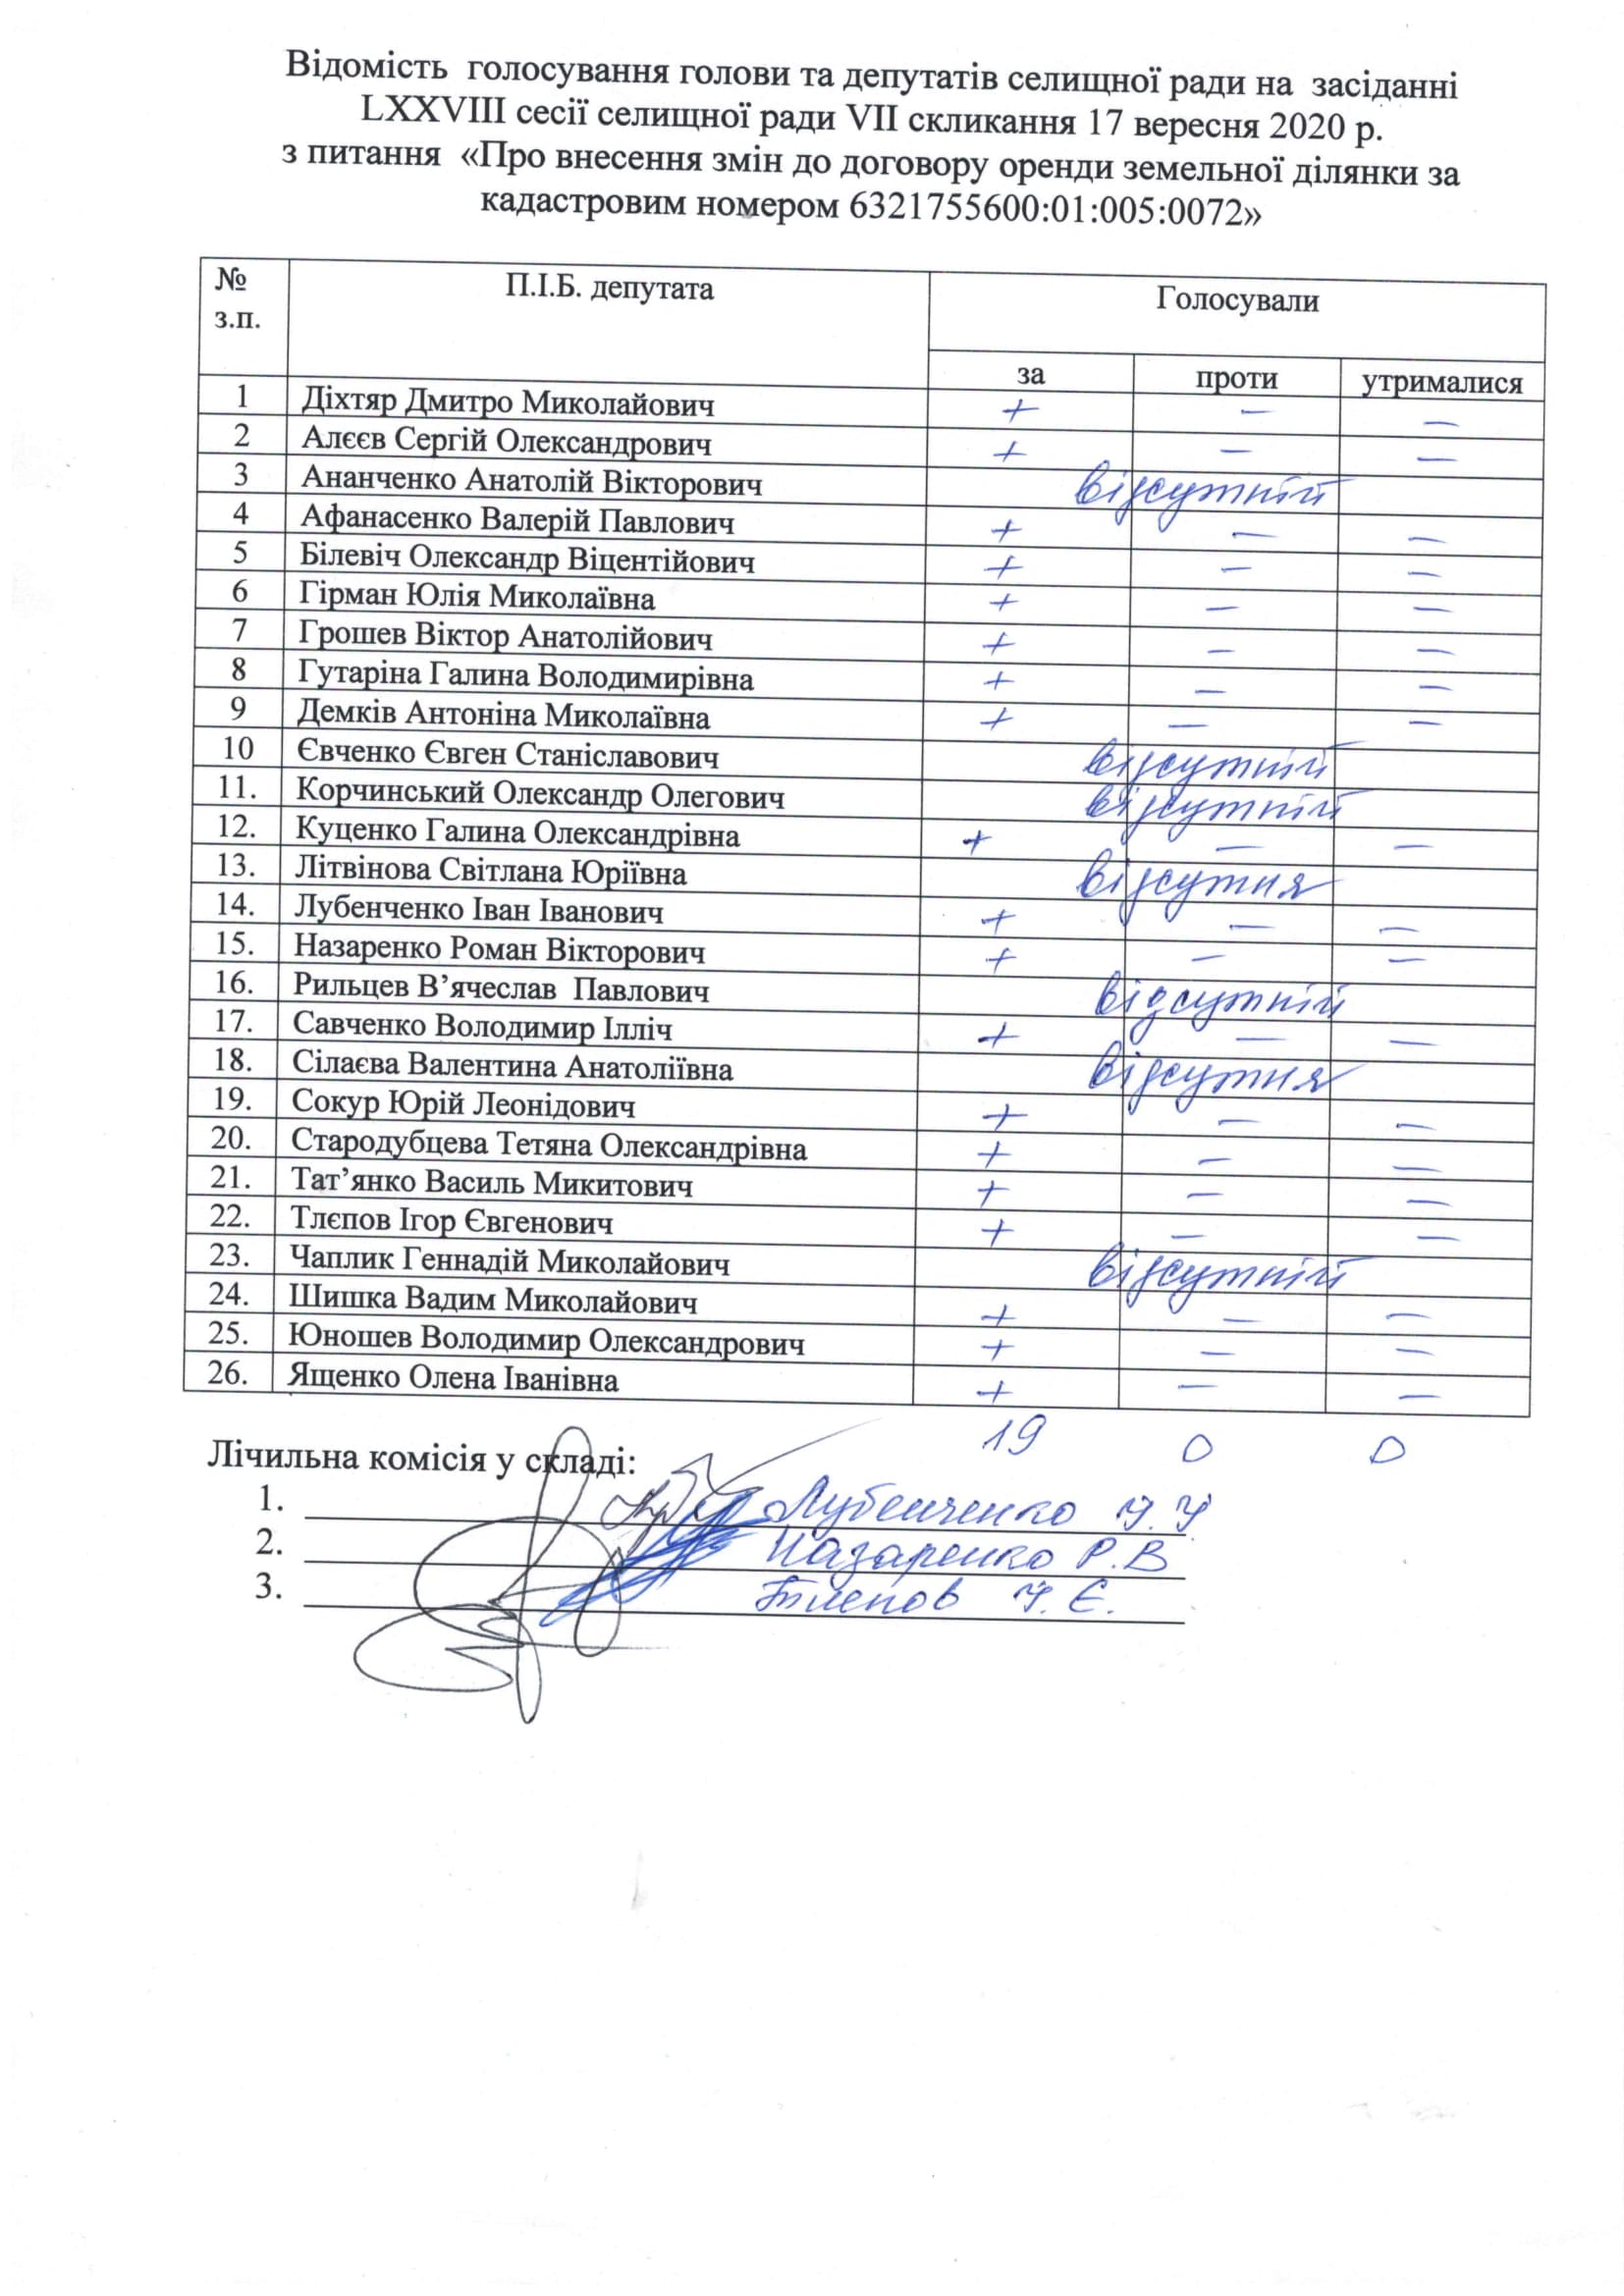 Відомість голосування голови та депутатів селищної ради на засіданні
LXXVIII сесії селищної ради VII скликання 17 вересня 2020 р.
з питання «Про внесення змін до договору оренди земельної ділянки за
кадастровим номером 6321755600:01:005:0072»
№ з.п. П.І.Б. депутата Голосували
за проти утрималися
1 Діхтяр Дмитро Миколайович + – –
2 Алєєв Сергій Олександрович + – –
3 Ананченко Анатолій Вікторович відсутній
4 Афанасенко Валерій Павлович + – –
5 Білевіч Олександр Віцентійович + – –
6 Гірман Юлія Миколаївна + – –
7 Грошев Віктор Анатолійович + – –
8 Гутаріна Галина Володимирівна + – –
9 Демків Антоніна Миколаївна + – –
10 Євченко Євген Станіславович відсутній
11. Корчинський Олександр Олегович відсутній
12. Куценко Галина Олександрівна + – –
13. Літвінова Світлана Юріївна відсутня
14. Лубенченко Іван Іванович + – –
15. Назаренко Роман Вікторович + – –
16. Рильцев В’ячеслав Павлович відсутній
17. Савченко Володимир Ілліч + – –
18. Сілаєва Валентина Анатоліївна відсутня
19. Сокур Юрій Леонідович + – –
20. Стародубцева Тетяна Олександрівна + – –
21. Тат’янко Василь Микитович + – –
22. Тлєпов Ігор Євгенович + – –
23. Чаплик Геннадій Миколайович відсутній
24. Шишка Вадим Миколайович + – –
25. Юношев Володимир Олександрович + – –
26. Ященко Олена Іванівна + – –
19 0 0
Лічильна комісія у складі:
1. Лубенченко І.І
2. Назаренко Р.В
3. Тлепов І.Є.